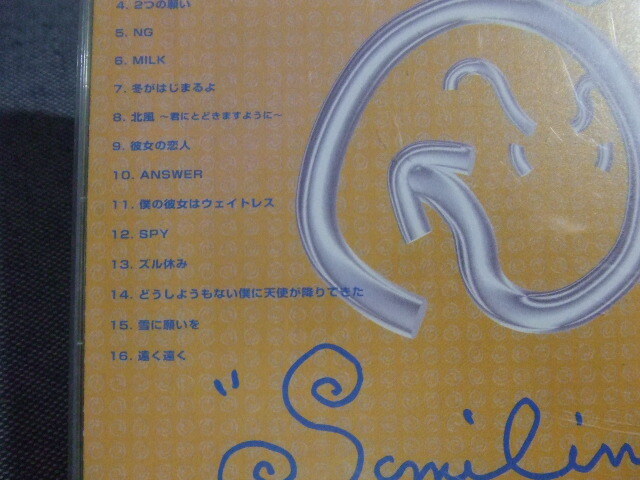 4. 2つの願い
5. NG
6. MILK
7. 冬がはじまるよ
8. 北風 〜君にとどきますように〜
9. 彼女の恋人
10. ANSWER
11. 僕の彼女はウェイトレス
12. SPY
13. ズル休み
14. どうしようもない僕に天使が降りてきた
15. 雪に願いを
16. 遠く遠く
"Smilin